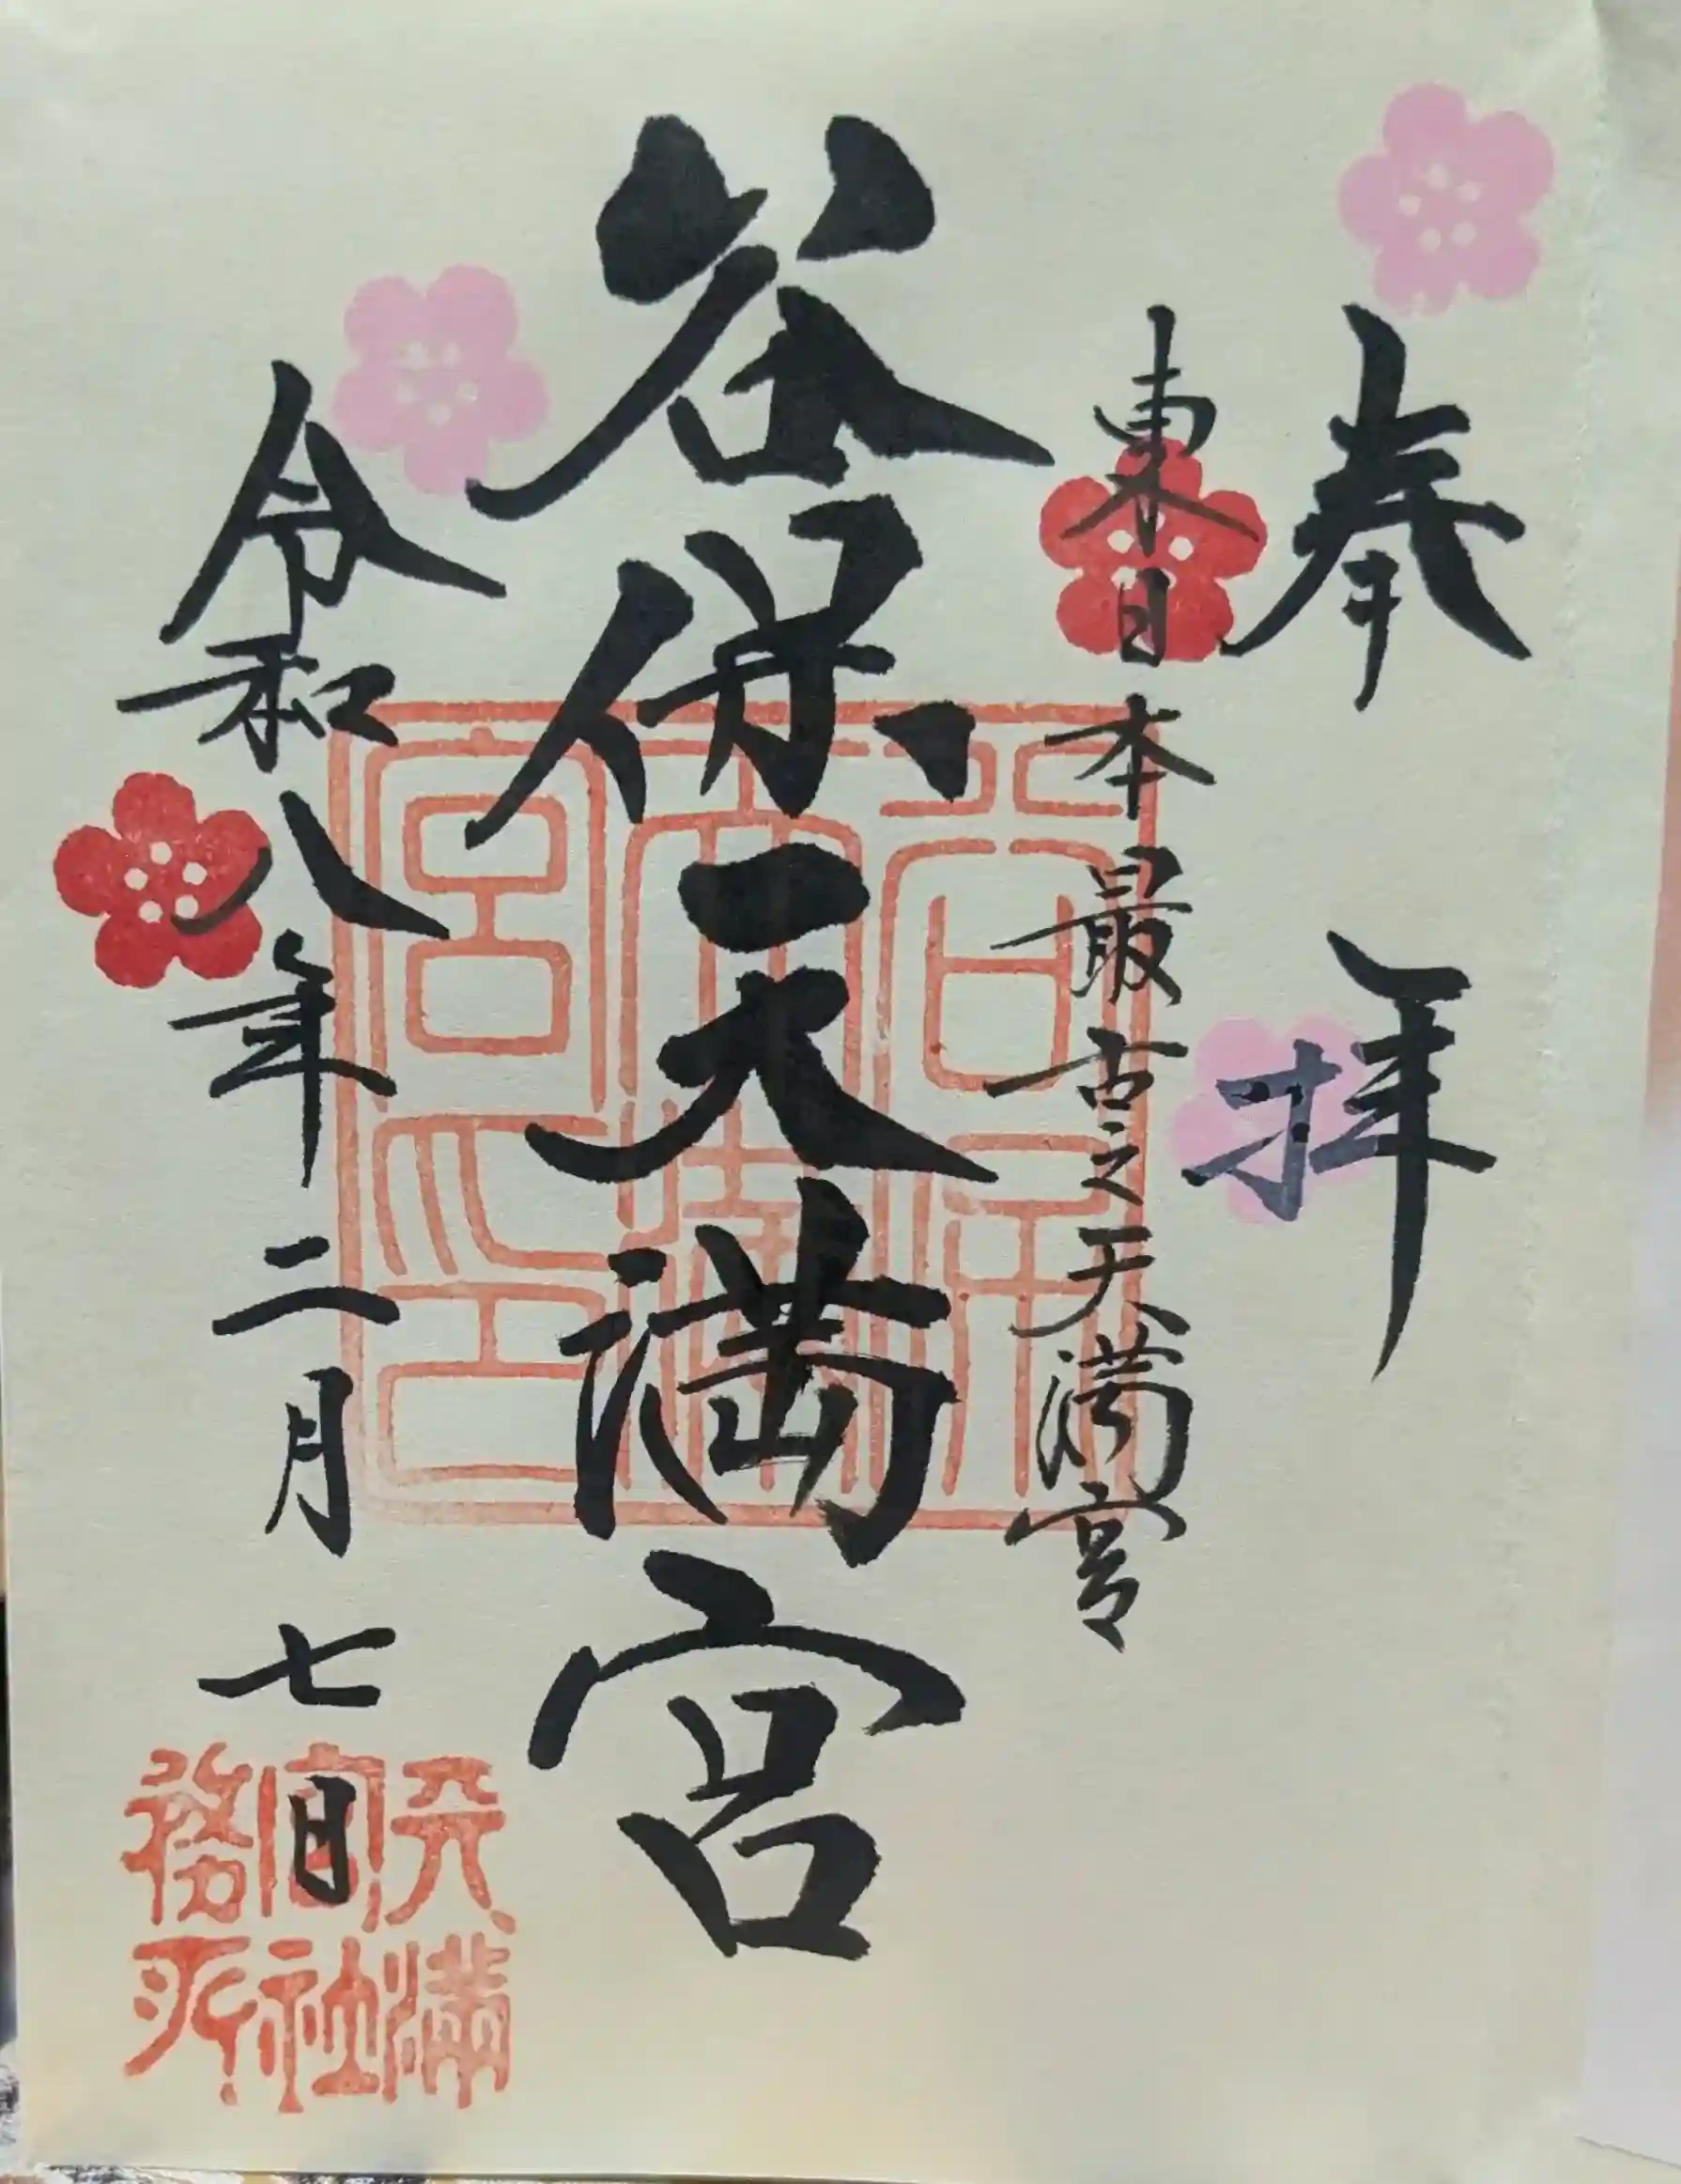 奉拝
東日本最古之天満宮
谷保天満宮
令和八年二月七日
天満
宮社
務所